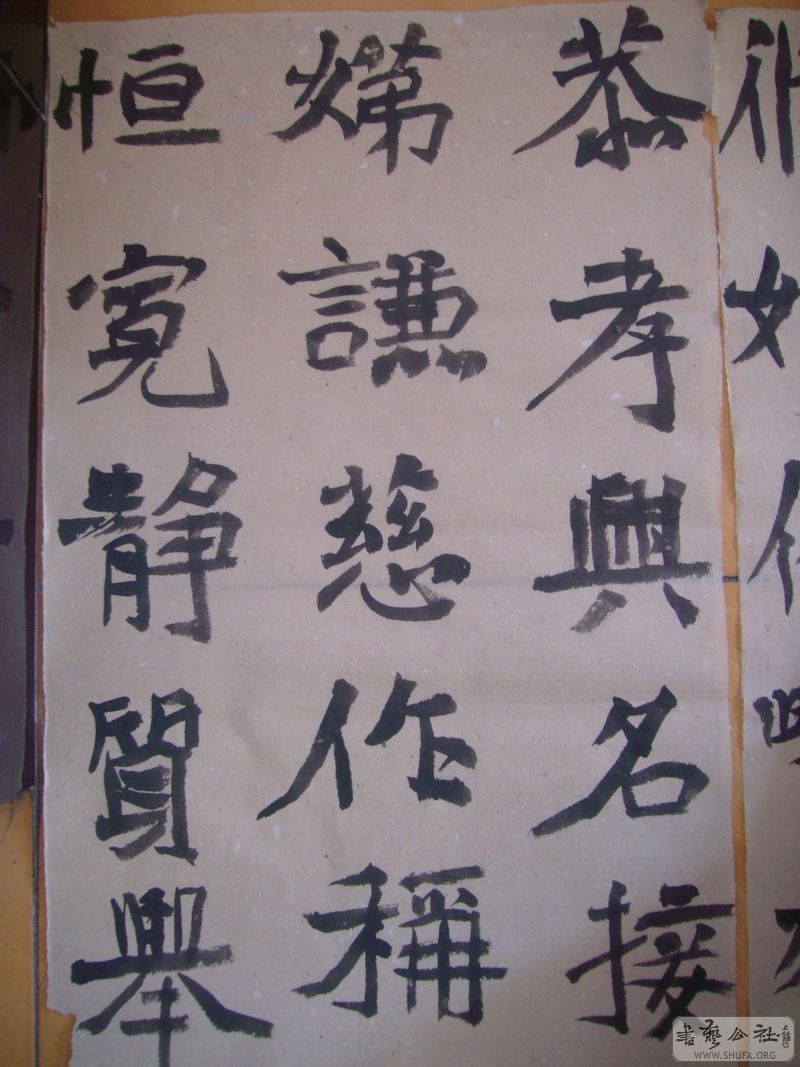 恭孝興名接
謙慈作稱
恒寬靜質舉
書藝公社
WWW.SHUFA.ORG